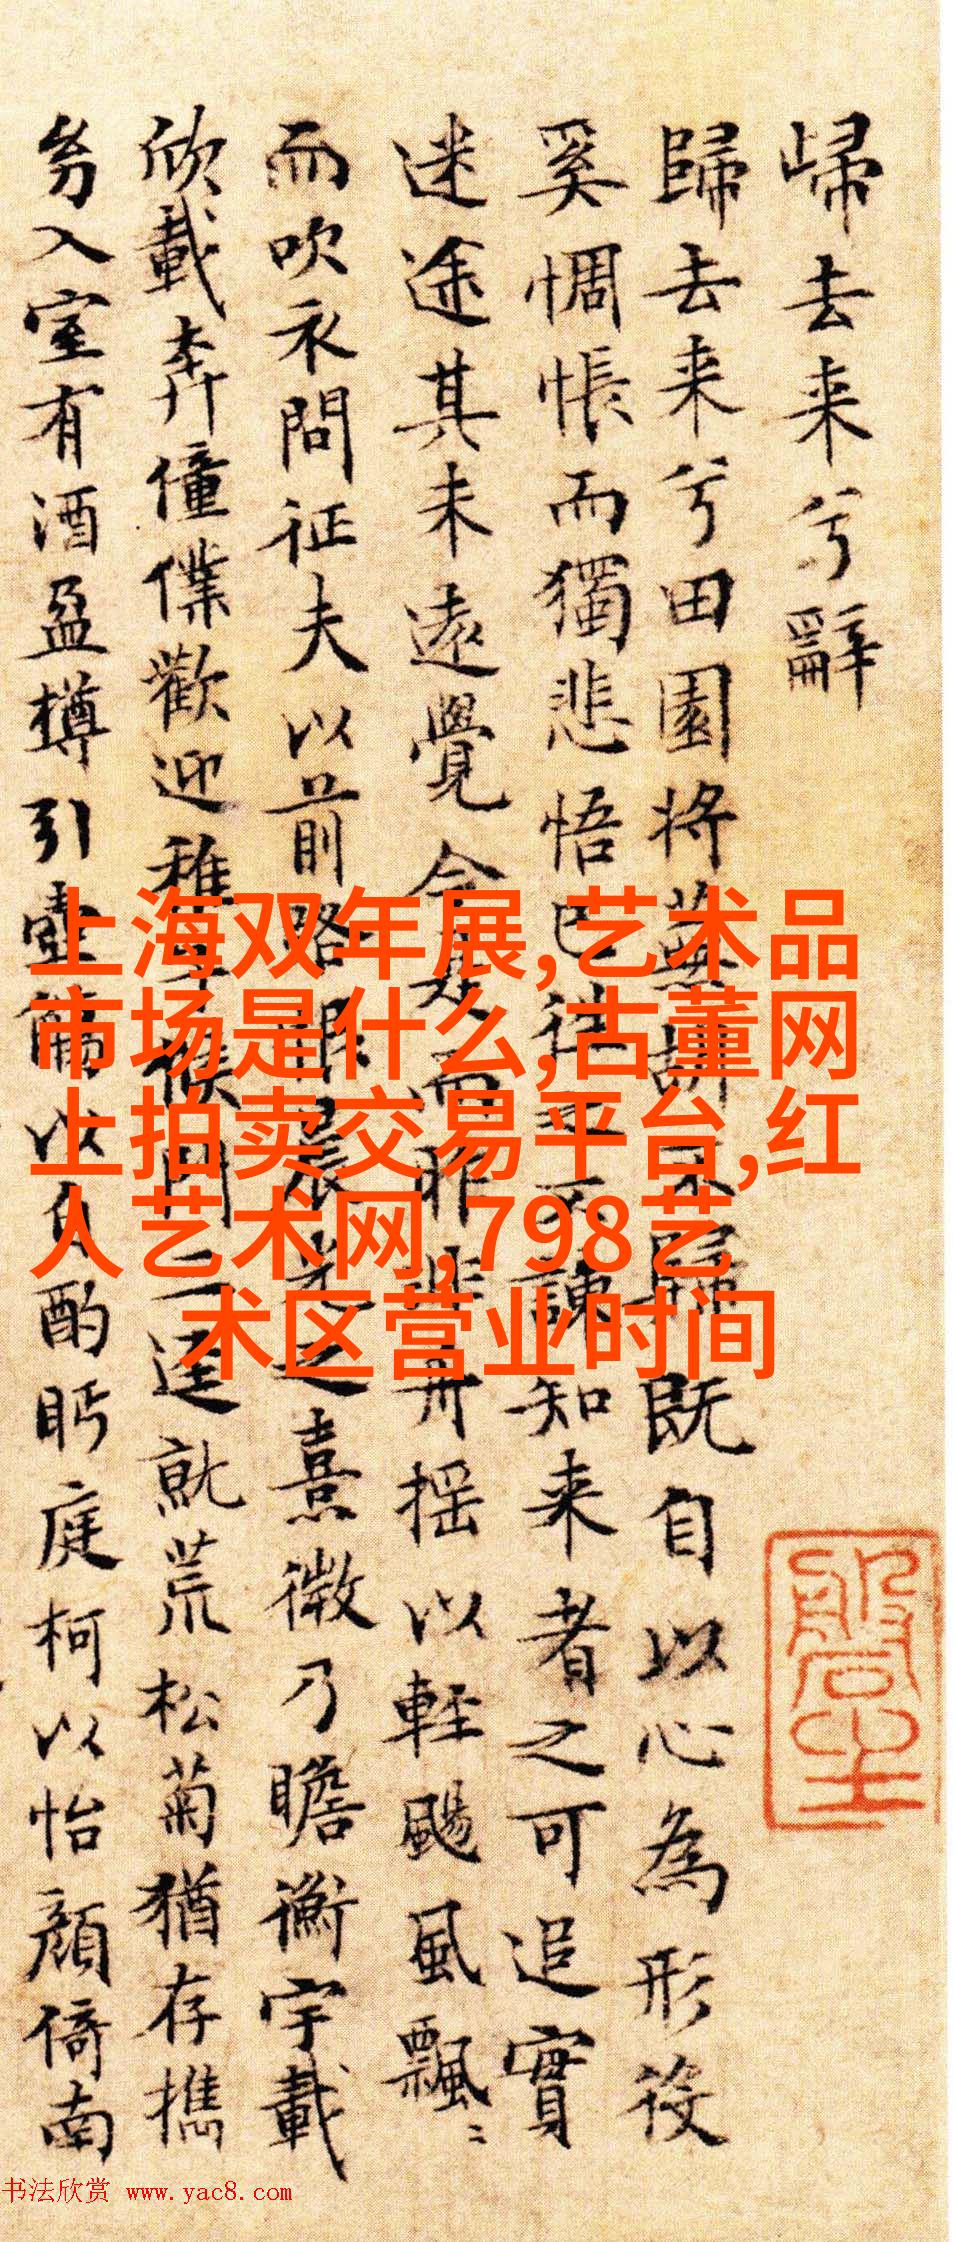 歸去来兮辭
歸去来兮田園将蕪胡不歸既自以心為形役
奚惆悵而獨悲悟已往之不諫知来者之可追實
迷途其未遠覺今是而昨非舟揺以輕颺風飄〻
而吹衣問征夫以前路恨晨光之熹微乃瞻衡宇載
欣載奔僮僕歡迎稚子候門三逕就荒松菊猶存携
㓜入室有酒盈樽引壺觴以自酌眄庭柯以怡顔倚南
上海双年展,艺术品
市场是什么,古董网
上拍卖交易平台,红
人艺术网,798艺
术区营业时间
书法欣赏 www.yac8.com